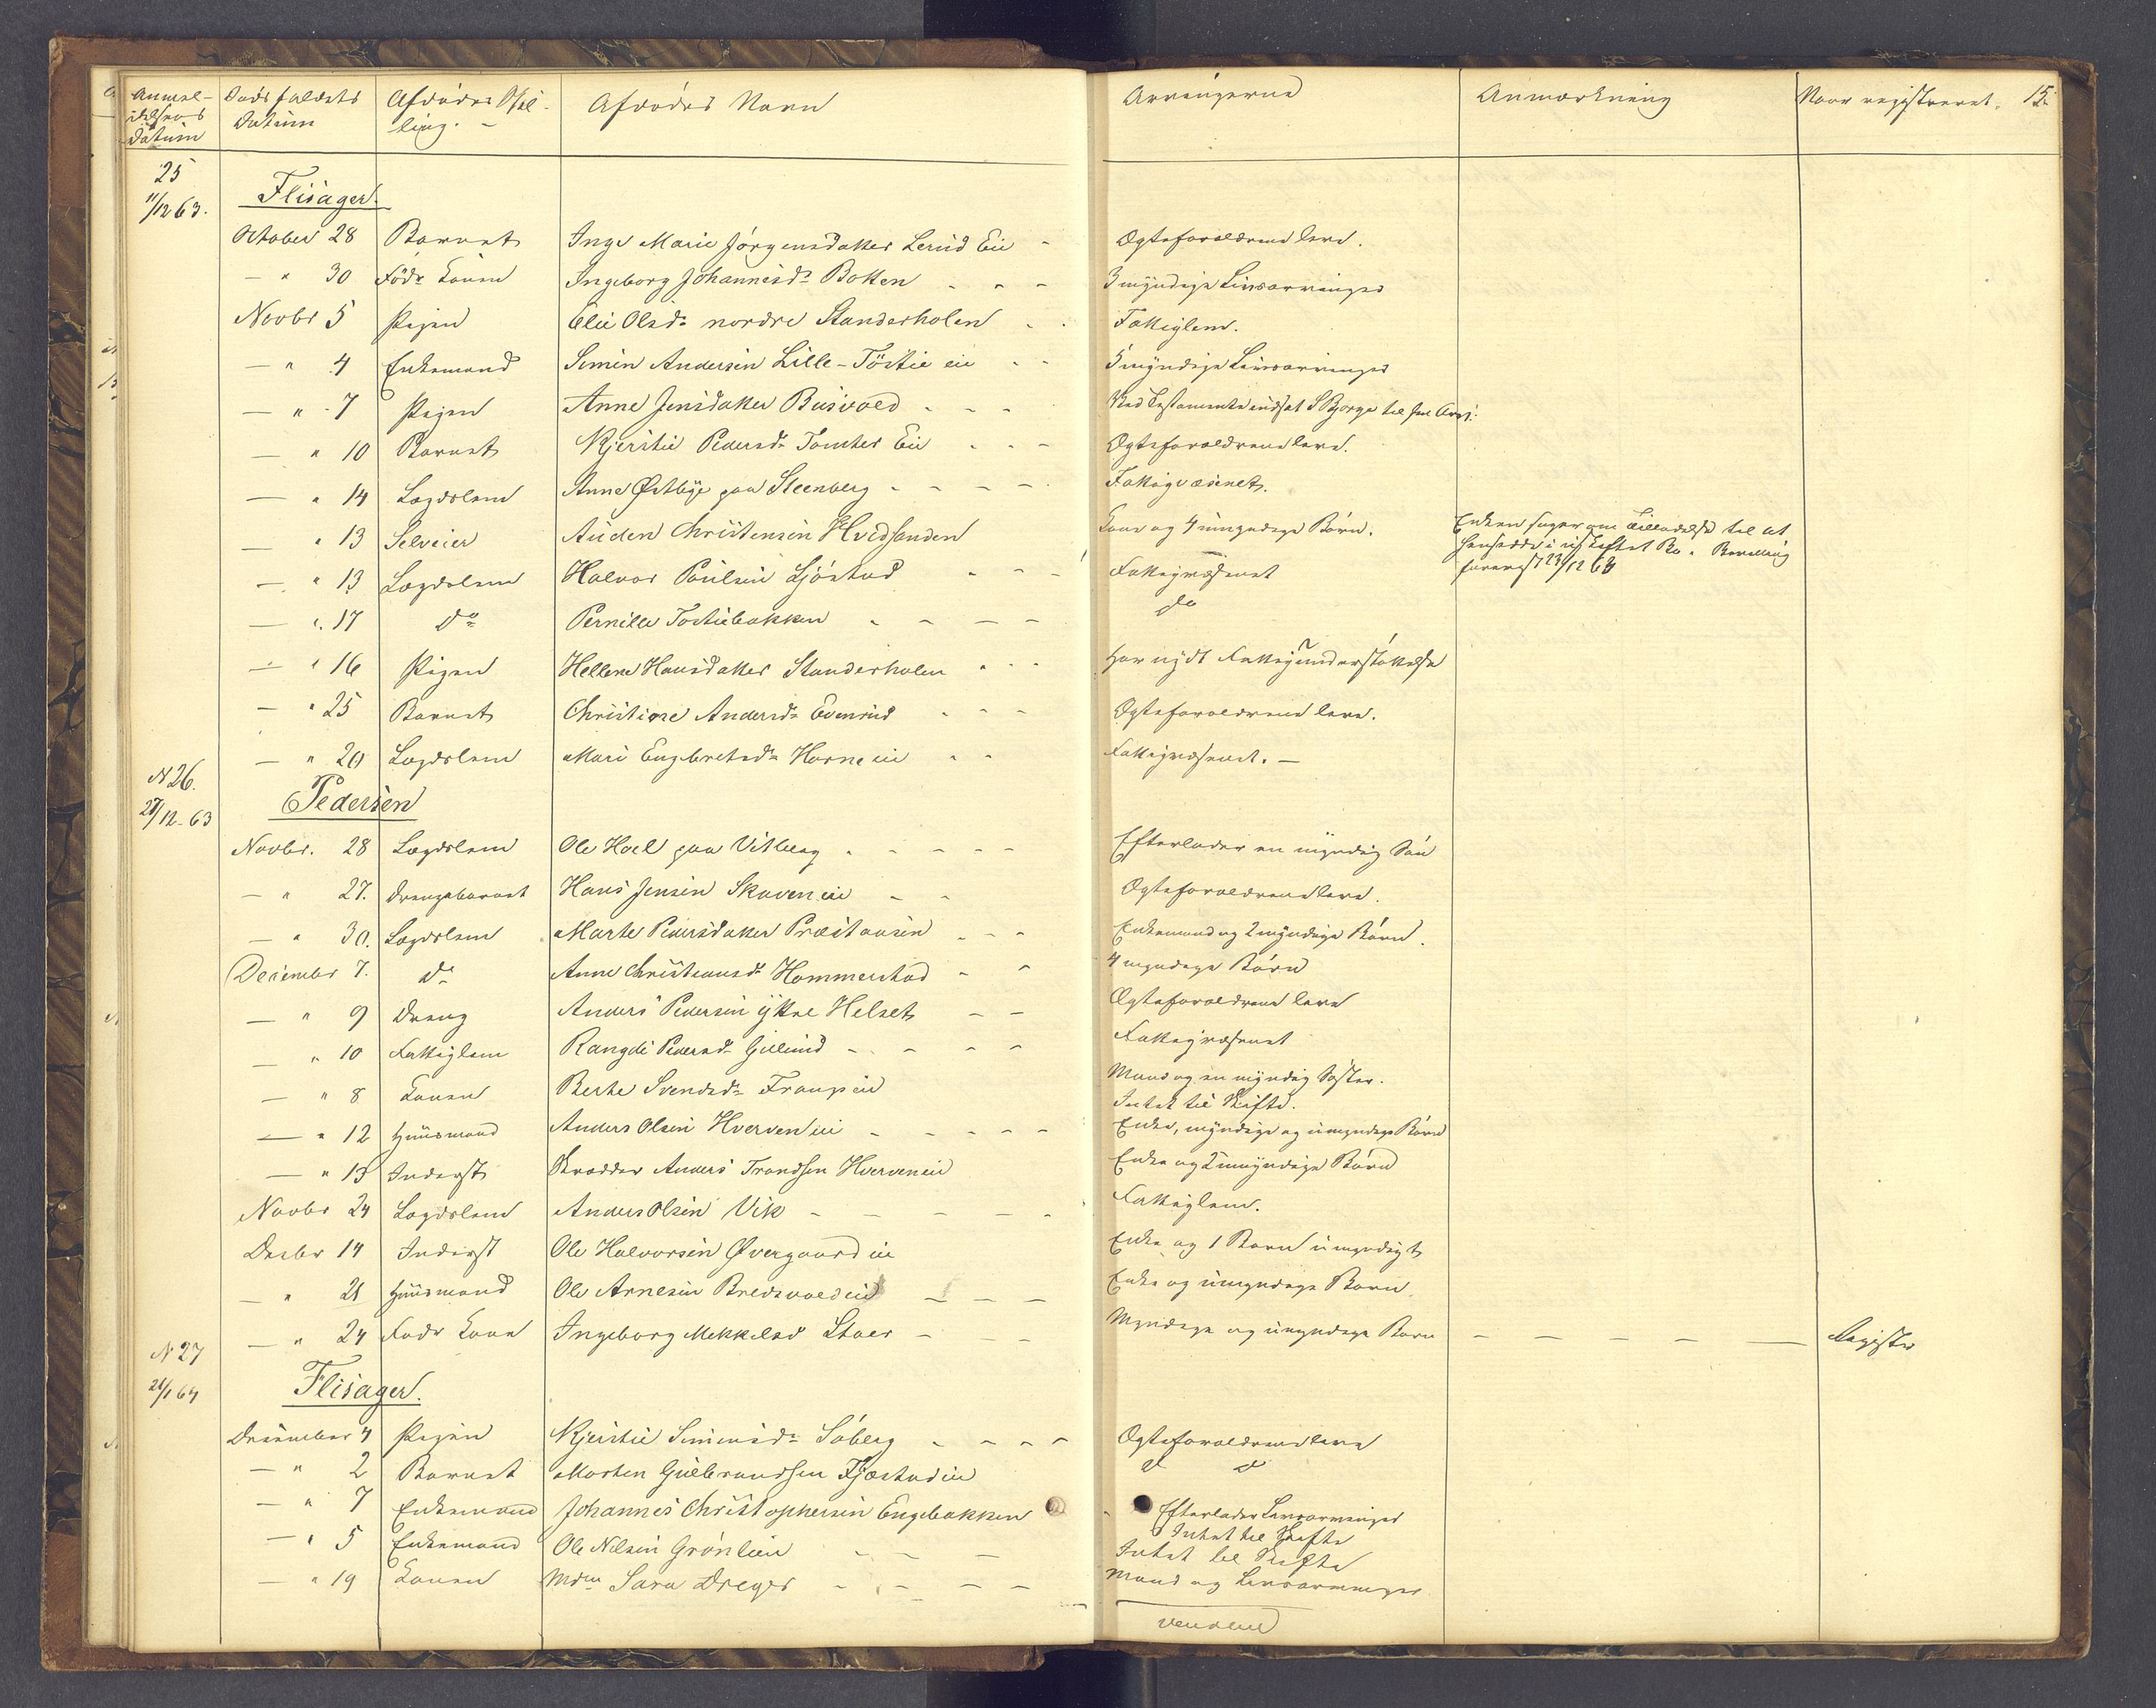 Anmel-
delsens
Datum
Dødsfaldets
Datum
Afdødes Stil-
ling.
Afdødes Navn
Arvingerne
Anmærkning
Naar registreret.
15
25
11/12 63.
Flisager
October 28 Barnet Inge Marie Jørgensdatter Lerud Eie - Ægteforældrene leve.
— " 30 Føder Konen Ingeborg Johannesdr Bakken - - - 3 myndige Livsarvinger
Novbr 5 Pigen Elie Olsdr nordre Standerholen - . Fattiglem.
— " 4 Enkemand Simen Andersen Lille-Töstie eie - - 5 myndige Livsarvinger
— " 7 Pigen Anne Jensdatter Buisvold - - - Ved Testamente indsat S Bjørge til sin Arvi.
— " 10 Barnet Kjerstie Pedersdr Tomter Eie - - - Ægteforældrene leve.
— " 14 Lægdslem Anne Østbye paa Steenberg - - - - Fattigvæsenet.
— " 13 Selveier Auden Christensen Hvidsanden Kone og 4 umyndige Børn. Enken søger om Tilladelse til at
hensidde i uskiftet Bo. Bevilling
23/12 63
— " 13 Lægdslem Halvor Paulsen Sjöstad - - - Fattigvæsenet
— " 17 do Pernille Tostiebakken - - - - do
— " 16 Pigen Hellene Hansdatter Standerholen - - - Har nydt Fattigunderstøttelse
— " 25 Barnet Christine Andersdr Evenrud - - - Ægteforældrene leve.
— " 20 Lægdslem Mari Engebretsdr Horne eie - - Fattigvæsenet. —
N 26.
28/12-63
Pedersen
Novbr. 28 Lægdslem Ole Hoel paa Vitberg - - - - - Efterlader en myndig Søn
— " 27. Drengebarnet Hans Jensen Skaven eie - - Ægteforældrene leve.
— " 30. Lægdslem Marte Pedersdatter Præstøusen - - - Enkemand og 2 myndige Børn.
December 7. do Anne Christiansdr Hammerstad - - 4 myndige Børn
— " 9 Dreng Anders Pedersen yttre Helset - - Ægteforældrene leve
— " 10 Fattiglem Rangdi Pedersdr Gullund - - - - Fattigvæsenet
— " 8 Konen Berte Svendsdr Fraup eie Mand og en myndig Søster.
Intet til Skifte.
— " 12 Huusmand Anders Olsen Hverven eie - - - - - Enke, myndige og umyndige Børn
— " 13 Inderst Skrædder Anders Trandsen Hverven eie Enke og 2 umyndige Børn
Novbr 24 Lægdslem Anders Olsen Vik - - - - - Fattiglem.
Decbr 14 Inderst Ole Halvorsen Øvergaard eie Enke og 1 Barn umyndigt
— " 21 Huusmand Ole Arnesen Bredevold eie - - - Enke og umyndige Børn.
— " 24 Føder Kone Ingeborg Mekkelsd Staer - - - Myndige og umyndige Børn — — — — — Register
N 27
21/1 64
Flisager.
December 4 Pigen Kjerstie Simensdr Søberg - - - - Ægteforældrene leve
— " 2 Barnet Morten Gulbrandsen Fjæstad eie d d
— " 7 Enkemand Johannes Christophersen Engebakken Efterlader Livsarvinger
Intet til Skifte
— " 5 Enkemand Ole Nilsen Grönlien - - - Intet til Skifte
— " 19 Konen Mdm Sara Dreyer - - - - Mand og Livsarvinger
Vendene